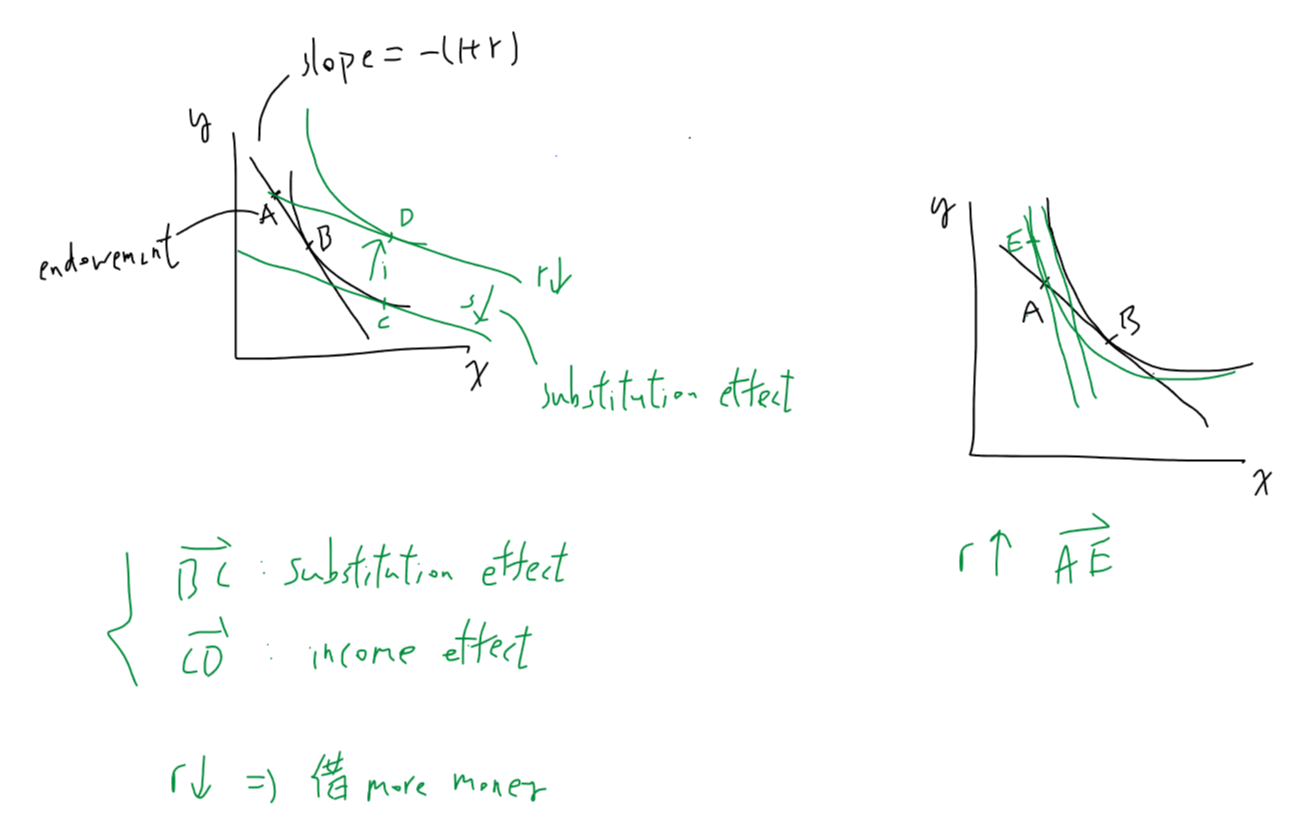 slope = -(1+r)
y
A
B
D
endowement
i
r↓
C
s↓
x
substitution effect
y
E
A
B
x
r↑ AE
BC : substitution effect
CD : income effect
r↓ => 借 more money